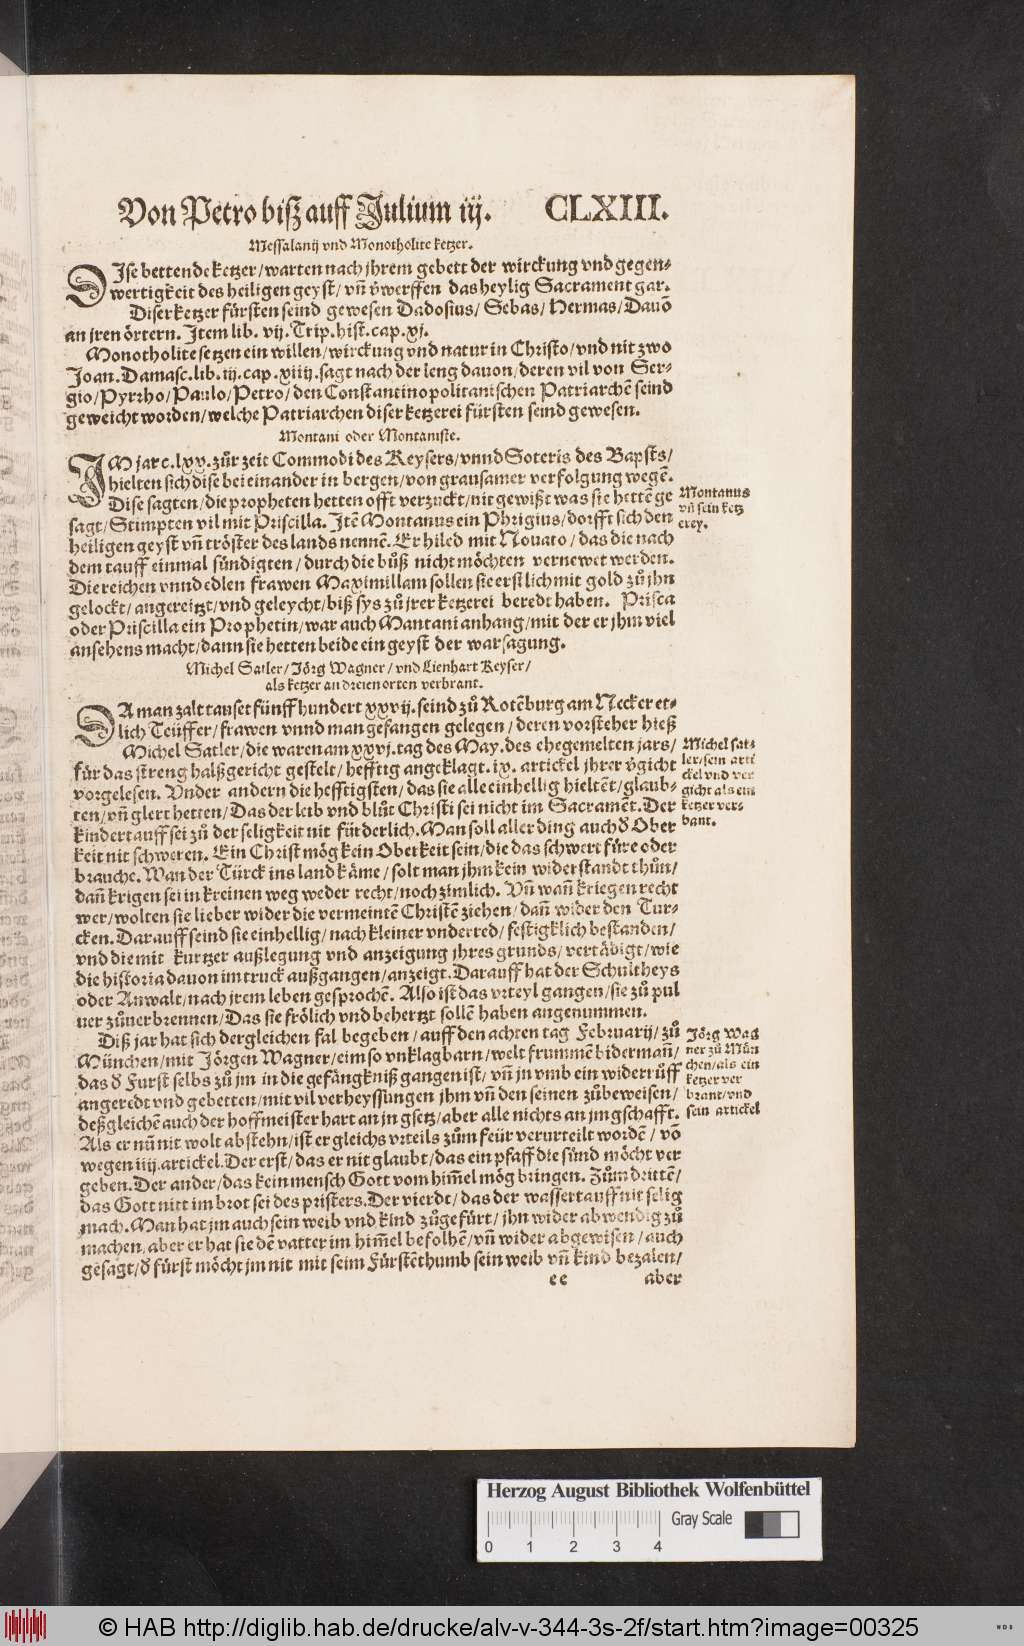 Von Petro biß auff Julium iij. CLXIII.
Messalanij vnd Monotholite ketzer.
DIse bettende ketzer/warten nach jhrem gebett der wirckung vnd gegen-
wertigkeit des heiligen geyst/ vñ v̈werffen das heylig Sacrament gar.
Diser ketzer fürsten seind gewesen Dadosius/ Sebas/ Hermas/Dauō
an jren örtern. Item lib. vij. Trip. hist. cap. xj.
Monotholite setzen ein willen/wirckung vnd natur in Christo/vnd nit zwo
Joan. Damasc. lib. iij. cap. xiiij. sagt nach der leng dauon/deren vil von Ser-
gio/Pyrrho/Paulo/Petro/den Constantinopolitanischen Patriarchē seind
geweicht worden/welche Patriarchen diser ketzerei fürsten seind gewesen.
Montani oder Montaniste.
IM jar c.lxx. zůr zeit Commodi des Keysers/vnnd Soteris des Bapsts/
hielten sich dise bei einander in bergen/von grausamer verfolgung wegē.
Dise sagten/die propheten hetten offt verzuckt/nit gewißt was sie hettē ge
sagt/Stimpten vil mit Priscilla. Itē Montanus ein Phrigius/dorfft sich den
heiligen geyst vñ tröster des lands nennē. Er hiled mit Nouato/das die nach
dem tauff einmal sündigten/durch die bůß nicht möchten vernewet werden.
Die reichen vnnd edlen frawen Maximillam sollen sie erstlich mit gold zů jhn
gelockt/angereitzt/vnd geleycht/biß sys zů jrer ketzerei beredt haben. Prisca
oder Priscilla ein Prophetin/war auch Mantani anhang/mit der er jhm viel
ansehens macht/dann sie hetten beide ein geyst der warsagung.
Montanus
vñ sein ketz
erey.
Michel Satler/Jörg Wagner/vnd Lienhart Keyser/
als ketzer an dreien orten verbrant.
DA man zalt tauset fünff hundert xxvij. seind zů Rotēburg am Necker et-
lich Teüffer/frawen vnnd man gefangen gelegen/deren vorsteher hieß
Michel Satler/die waren am xxvj. tag des May. des ehegemelten jars/
für das streng halßgericht gestelt/hefftig angeklagt. ix. artickel jhrer v̈gicht
vorgelesen. Vnder andern die hefftigsten/das sie alle einhellig hieltēt/glaub-
ten/vñ glert hetten/Das der leib vnd blůt Christi sei nicht im Sacramēt. Der
kindertauff sei zů der seligkeit nit fürderlich. Man soll aller ding auch d̄ Ober
keit nit schweren. Ein Christ mög kein Oberkeit sein/die das schwert füre oder
brauche. Wan der Türck ins land käme/solt man jhm kein widerstandt thůn/
dañ krigen sei in kreinen weg weder recht/noch zimlich. Vñ wañ kriegen recht
wer/wolten sie lieber wider die vermeintē Christē ziehen/dañ wider den Tur-
cken. Darauff seind sie einhellig/nach kleiner vnderred/festigklich bestanden/
vnd die mit kurtzer außlegung vnd anzeigung jhres grunds/vertäbigt/wie
die historia dauon im truck außgangen/anzeigt. Darauff hat der Schultheys
oder Anwalt/nach jrem leben gesprochē. Also ist das vrteyl gangen/sie zů pul
uer zůuerbrennen/Das sie frölich vnd behertzt sollē haben angenummen.
Michel sat-
ler/sein arti
ckel vnd ver
gicht als ein
ketzer ver-
bant.
Diß jar hat sich dergleichen fal begeben/auff den achten tag Februarij/zů
München/mit Jörgen Wagner/eim so vnklagbarn/welt frummē bidermañ/
das d̄ Furst selbs zů jm in die gefängkniß gangen ist/vñ jn vmb ein widerrůff
angeredt vnd gebetten/mit vil verheyssungen jhm vñ den seinen zůbeweisen/
deßgleichē auch der hoffmeister hart an jn gsetz/aber alle nichts an jm gschafft.
Als er nū nit wolt abstehn/ist er gleichs vrteils zům feür verurteilt wordē/vō
wegen iiij. artickel. Der erst/das er nit glaubt/das ein pfaff die sünd möcht ver
geben. Der ander/das kein mensch Gott vom him̄el mög bringen. Zům drittē/
das Gott nitt im brot sei des pristers. Der vierdt/das der wassertauff nit selig
mach. Man hat jm auch sein weib vnd kind zůgefürt/jhn wider abwendig zů
machen, aber er hat sie dē vatter im him̄el befolhē/vñ wider abgewisen/auch
gesagt/d̄ fürst möcht jm nit mit seim Fürstēthumb sein weib vñ kind bezalen/
Jörg Wag
ner zů Mün
chen/als ein
ketzer ver
brant/vnd
sein artickel
ee aber
Herzog August Bibliothek Wolfenbüttel
Gray Scale
0 1 2 3 4
© HAB http://diglib.hab.de/drucke/alv-v-344-3s-2f/start.htm?image=00325